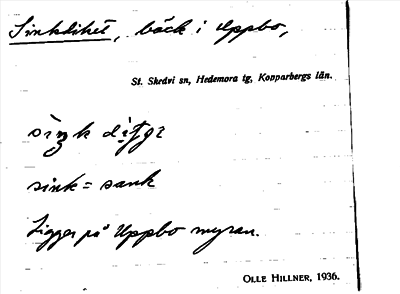 Sinkdiket, bäck i Uppbo,
St. Skedvi sn, Hedemora tg, Kopparbergs län.
sink = sank
Ligger på Uppbo myran.
OLLE HILLNER, 1936.